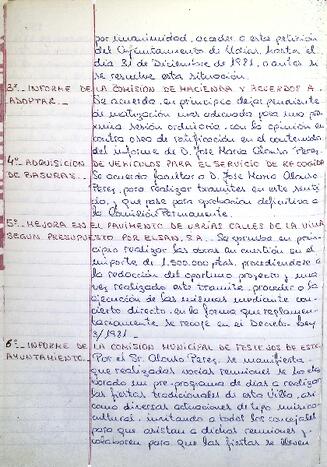 por unanimidad, acceder a esta petición
del Ayuntamiento de Llorías, hasta el
día 31 de Diciembre de 1981, o antes si
se resuelve esta situación.
3º.- INFORME DE LA COMISION DE HACIENDA Y ACUERDOS A
ADOPTAR.-
Se acuerda en principio dejar pendiente
de matización mas adecuada para una pro-
xima sesión ordinaria, con la opinión en
contra o sea de ratificación en el contenido
del informe de D. José María Alonso Perez.
4º.- ADQUISICION DE VEHICULOS PARA EL SERVICIO DE RECOGIDA
DE BASURAS.-
Se acuerda facultar a D. José Maria Alonso
Perez, para realizar tramites en este senti-
do, y que pase para aprobación definitiva a
la Comisión Permanente.
5º.- MEJORA EN EL PAVIMENTO DE VARIAS CALLES DE LA VILLA
SEGUN PRESUPUESTO POR ELSAN, S.A.- Se aprueba en prin-
cipio realizar las obras en cuestión en el
importe de 1.500.000 ptas, procediendose a
la redacción del oportuno proyecto y una
vez realizado este tramite, proceder a la
ejecución de las mismas mediante con-
cierto directo, en la forma que reglamen-
tariamente se recoje en el Decreto Ley
3/1981.-
6º.- INFORME DE LA COMISION MUNICIPAL DE FESTEJOS DE ESTE
AYUNTAMIENTO.-
Por el Sr. Alonso Perez, se manifiesta
que realizadas varias reuniones se ha ela-
borado un pre-programa de dias a realizar
las fiestas tradicionales de esta Villa, asi
como diversas actuaciones de tipo musico-
cultural, invitando a todos los concejales
para que asistan a dichas reuniones y
colaboren para que las fiestas se lleven